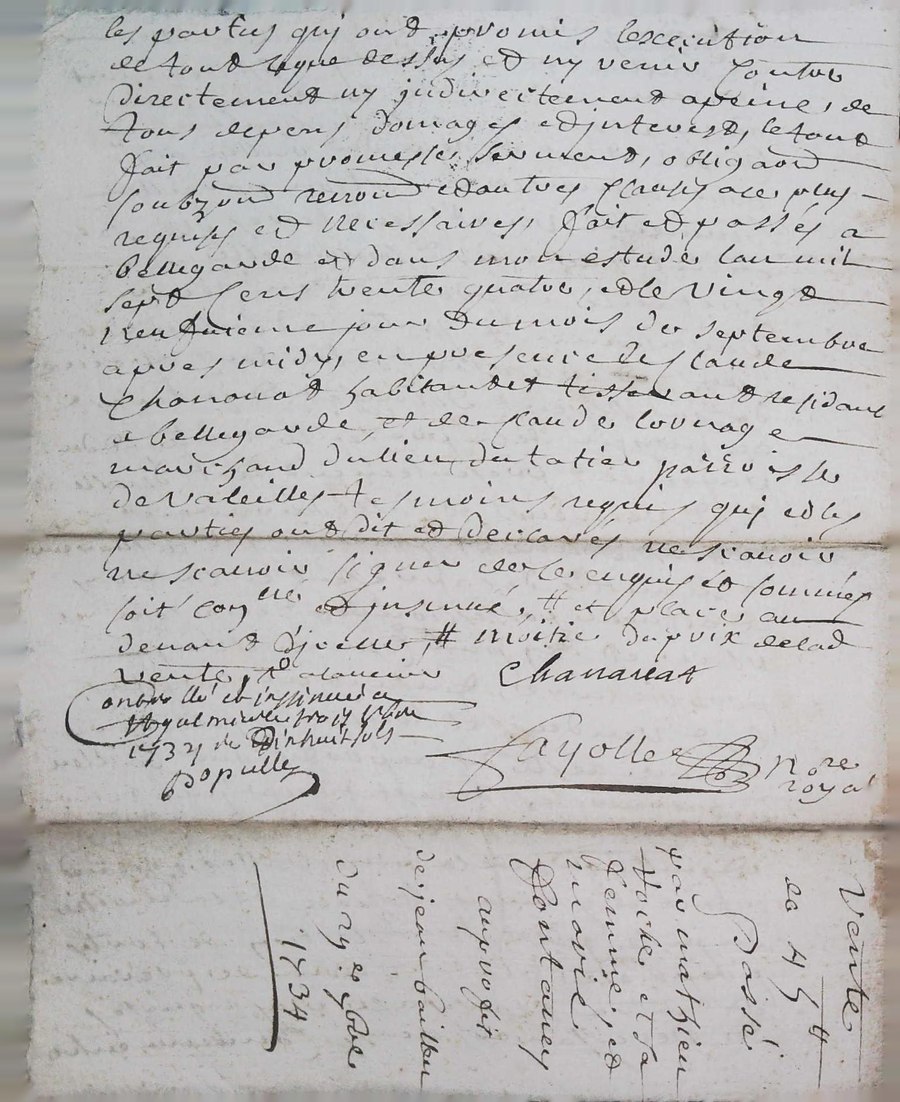 les parties quj ont promis lexecution
de tout ceque dessus et ny venir Contre
directement ny jndirectement apeine, de
tous depens Domages et jnterest, le tout
fait par promesses serment, obligaon
soubzon renon et autres Clauses ace plus
requises et necessaires, fait et passés a
bellegarde et dans mon estude lan mil
sept Cens trente quatre, et le vingt
neufuieme jour du mois de septembre
apres midy, en presence de Claude
Chanauat habitant et tisserant residant
a bellegarde, et de Claude
marchand du lieu paroisse
de valeilles tesmoins requis quj et les
parties ont dit et declarés ne scauoir
ne scauoir signer de ce enquis et sommés
soit et jnsinué, # et places au
deuant djcelle, # moitie du prix de lad
vente,
Chanaueat
controllé et jnssinué a
le trois
1734 dixhuit sols
Populle
Fayolle Nore
royal
Vente
de 45 #
Passé
par mathieu
Voche et sa
femme, et
marie
Fontaney
au profit
de jean
du 29e 7bre
1734